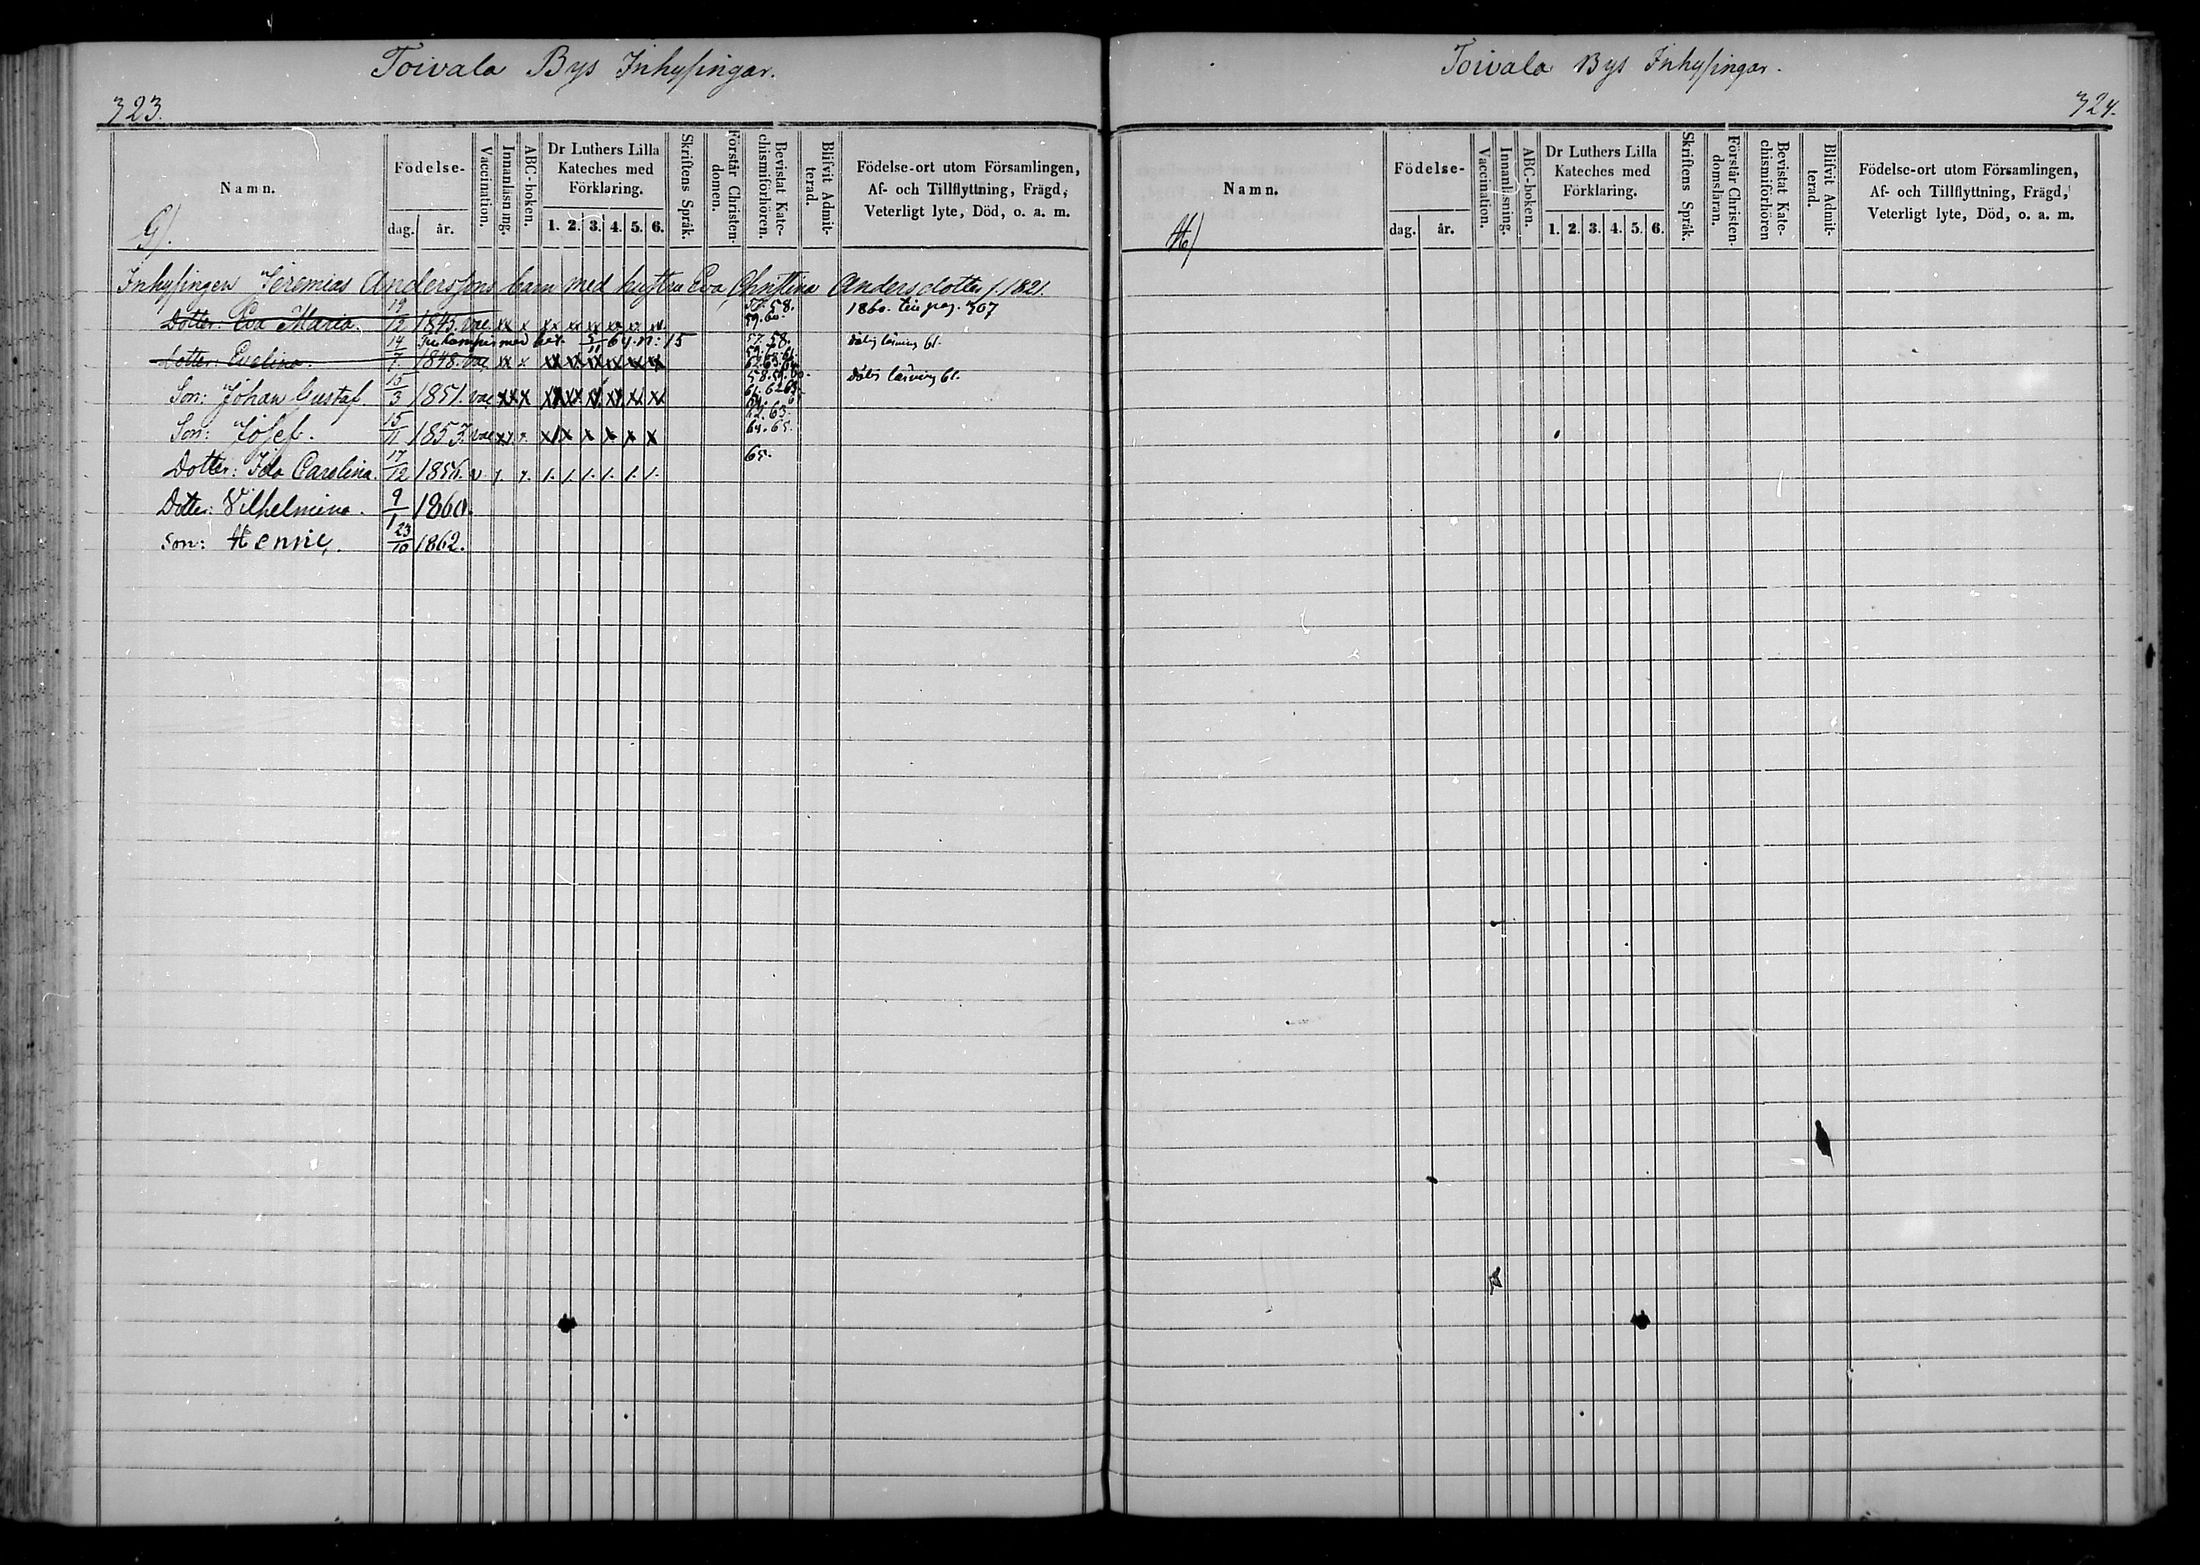 Toivala Bys Inhysingar.
323.
Namn.
G).
Födelse-
dag.
år.
Vaccination.
Innanläsning.
ABC-boken.
Dr Luthers Lilla
Kateches med
Förklaring.
1. 2. 3. 4. 5. 6.
Skriftens Språk.
Förstår Christen-
domen.
Bevistat Kate-
chismiförhören.
Blifvit Admit-
terad.
Födelse-ort utom Församlingen,
Af- och Tillflyttning, Frägd,
Veterligt lyte, Död, o. a. m.
Inhysingen Jeremias Anderssons barn med hustru Eva Christina Andersdotter f. 1821.
Dotter: Eva Maria. 19/12 1845. vac. 57. 58. 59. 60. 1860. pag. 307
64. n: 15
Dotter: Evelina. 14/7 1848. vac. 57. 58. dålig läsning 61.
Son: Johan Gustaf. 15/3 1851. vac. 58. 59. 60. 61. 62 63. dålig läsning 61.
Son: Josef. 15/11 1853. vac 62. 63. 64. 65.
Dotter: Ida Carolina. 17/12 1856. v. 1. 1. 1. 1. 1. 1. 65.
Dotter: Vilhelmina. 9/1 1860.
Son: Henric. 23/10 1862.
Toivala Bys Inhysingar.
324.
Namn.
H)
Födelse-
dag.
år.
Vaccination.
Innanläsning.
ABC-boken.
Dr Luthers Lilla
Kateches med
Förklaring.
1. 2. 3. 4. 5. 6.
Skriftens Språk.
Förstår Christen-
domsläran.
Bevistat Kate-
chismiförhören
Blifvit Admit-
terad.
Födelse-ort utom Församlingen,
Af- och Tillflyttning, Frägd,
Veterligt lyte, Död, o. a. m.